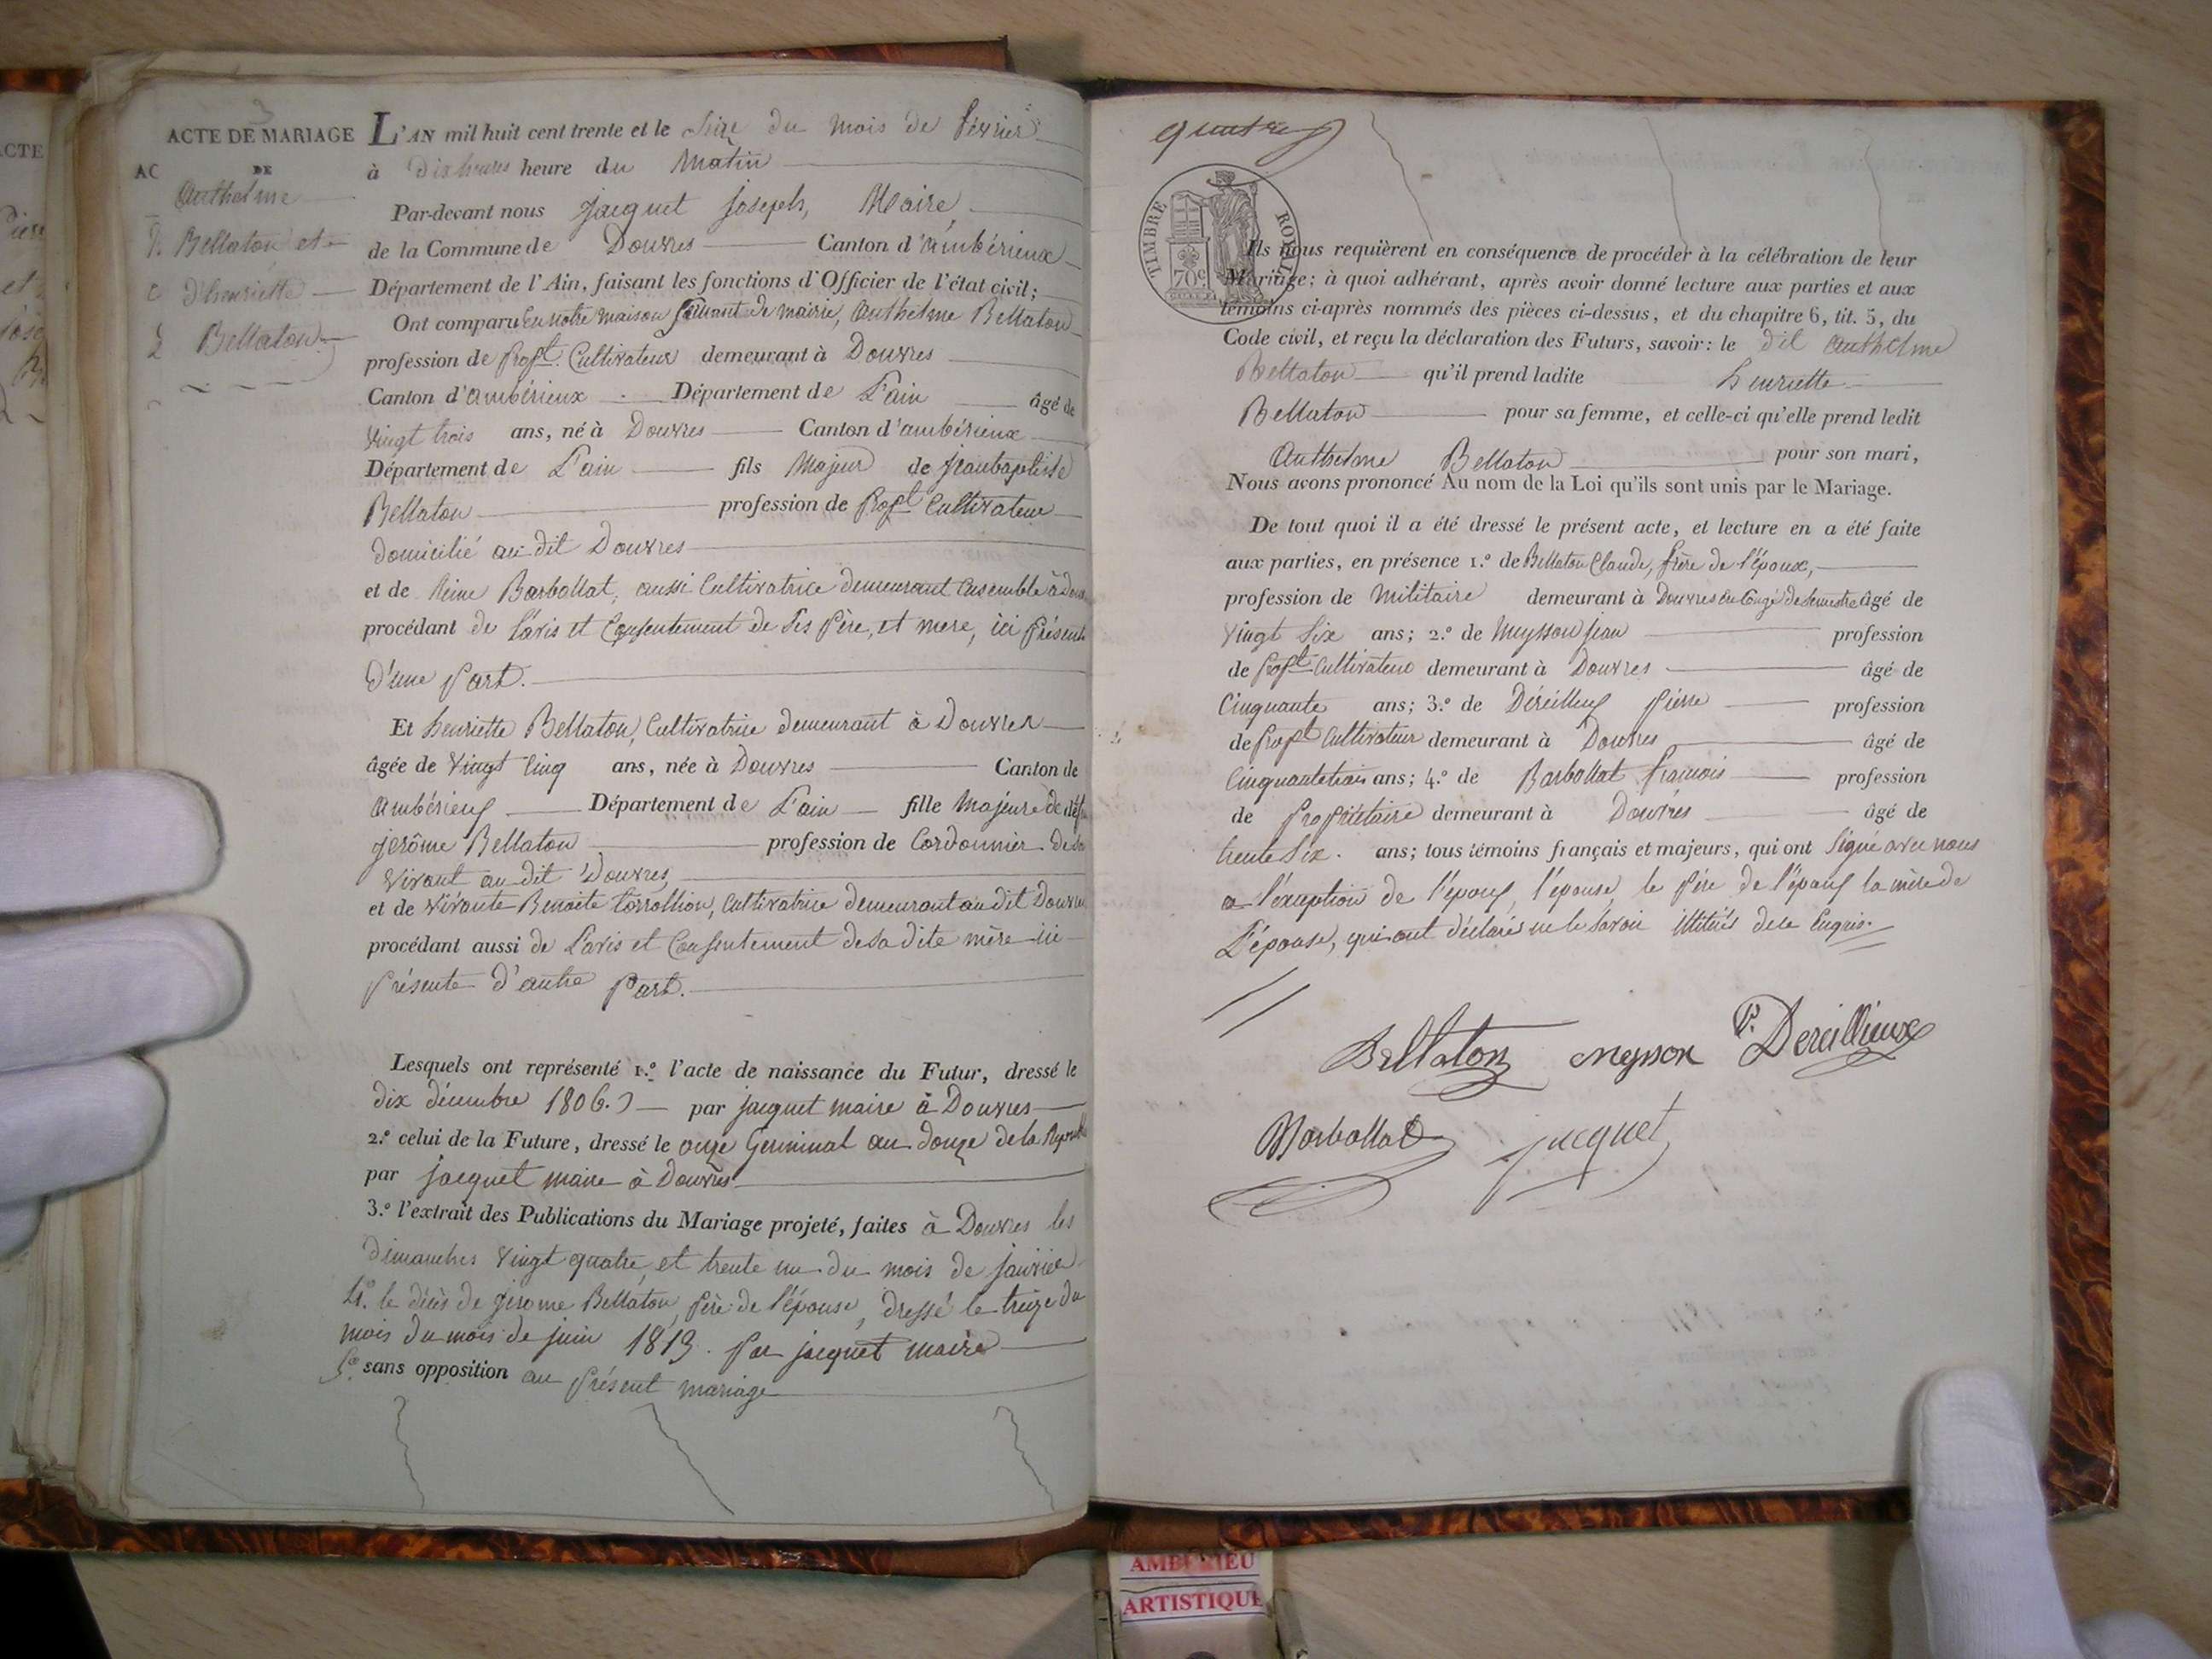 3
ACTE DE MARIAGE
DE
Anthelme
Bellaton et
d'henriette
Bellaton
L'AN mil huit cent trente et le Seize du mois de février
à Dix heures heure du Matin
Par-devant nous jacquet joseph, Maire,
de la Commune de Douvres Canton d'ambérieux
Département de l'Ain, faisant les fonctions d'Officier de l'état civil;
Ont comparu En notre maison servant de mairie, Anthelme Bellaton
profession de Propt. Cultivateur demeurant à Douvres
Canton d'ambérieux Département de L'ain âgé de
Vingt trois ans, né à Douvres Canton d'ambérieux
Département de L'ain fils Majeur de jeanbaptiste
Bellaton profession de Propt Cultivateur
domicilié au dit Douvres
et de Reine Barbollat, aussi Cultivatrice demeurant Ensemble à
procédant de L'avis et Consentement de Ses Père, et mere, ici Présents
d'une Part.
Et henriette Bellaton, Cultivatrice demeurant à Douvres
âgée de Vingt Cinq ans, née à Douvres Canton de
Ambérieux Département de L'ain fille Majeure de
jerôme Bellaton profession de Cordonnier de
Vivant au dit Douvres,
et de Vivante Benoite Corrollion, Cultivatrice demeurant au dit Douvres
procédant aussi de L'avis et Consentement de sa dite mère ici
Présente d'autre Part.
Lesquels ont représenté 1.º l'acte de naissance du Futur, dressé le
dix décembre 1806. par jacquet maire à Douvres
2.º celui de la Future, dressé le onze Germinal an douze de la
par jacquet maire à Douvres
3.º l'extrait des Publications du Mariage projeté, faites à Douvres les
dimanches Vingt quatre, et trente un du mois de janvier
4º. le décès de jerome Bellaton, père de l'épouse, dressé le treize du
mois du mois de juin 1813. Par jacquet maire
sans opposition au Présent mariage
quatre
TIMBRE ROYAL
70c
Ils nous requièrent en conséquence de procéder à la célébration de leur
Mariage; à quoi adhérant, après avoir donné lecture aux parties et aux
témoins ci-après nommés des pièces ci-dessus, et du chapitre 6, tit. 5, du
Code civil, et reçu la déclaration des Futurs, savoir: le dit Anthelme
Bellaton qu'il prend ladite henriette
Bellaton pour sa femme, et celle-ci qu'elle prend ledit
Anthelme Bellaton pour son mari,
Nous avons prononcé Au nom de la Loi qu'ils sont unis par le Mariage.
De tout quoi il a été dressé le présent acte, et lecture en a été faite
aux parties, en présence 1.º de Bellaton Claude, frère de l'époux,
profession de Militaire demeurant à Douvres en Congé de Semestre âgé de
Vingt Six ans; 2.º de Meysson jean profession
de Propt Cultivateur demeurant à Douvres âgé de
Cinquante ans; 3.º de Déreilleux pierre profession
de Propt Cultivateur demeurant à Douvres âgé de
Cinquantetrois ans; 4.º de Barbollat françois profession
de Propriétaire demeurant à Douvres âgé de
trente Six. ans; tous témoins français et majeurs, qui ont Signé avec nous
a l'exeption de l'époux, l'épouse, le Père de l'époux la mère de
L'épouse, qui ont déclarés ne le Savoir de ce Enquis.
Bellaton Meysson P. Dereillieux
Barbollat jacquet
AMBERIEU
ARTISTIQUE